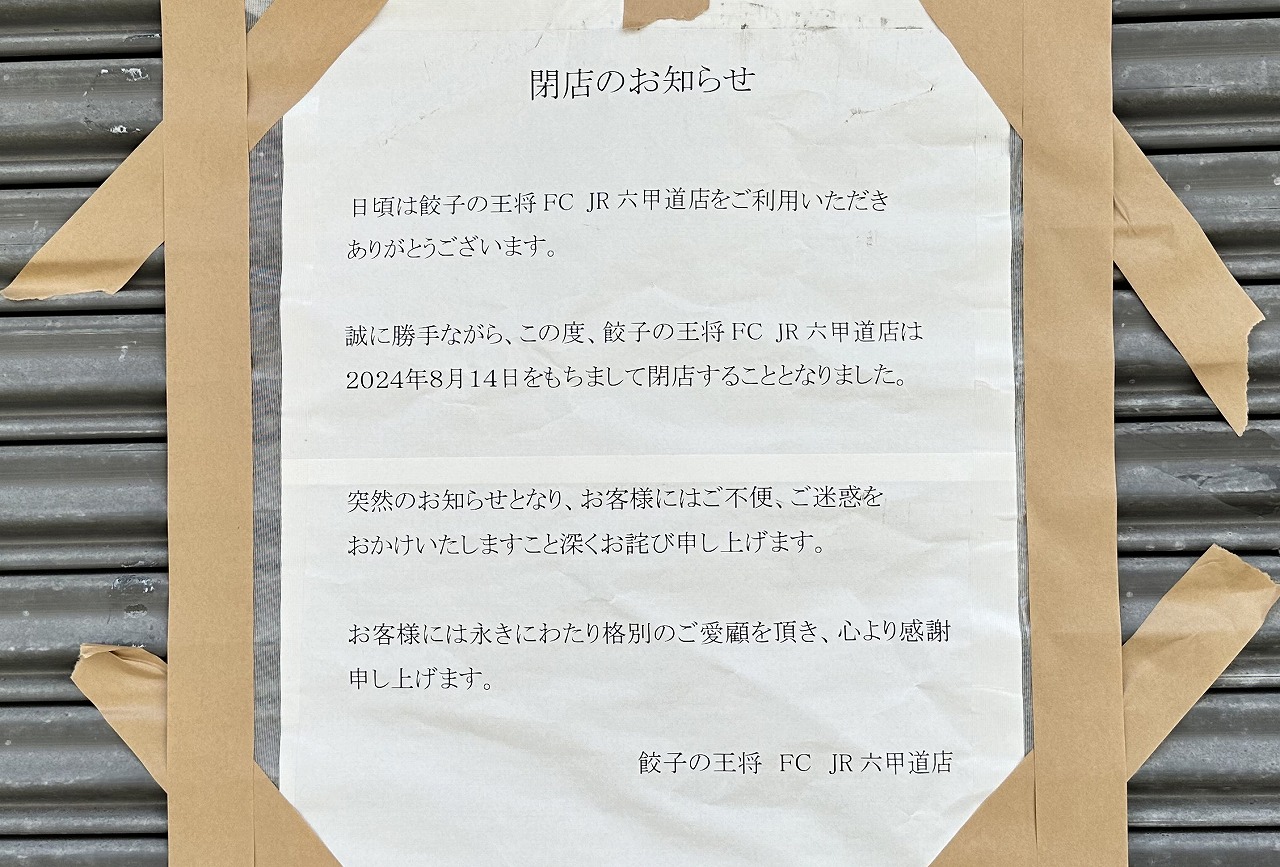 閉店のお知らせ
日頃は餃子の王将FC JR六甲道店をご利用いただき
ありがとうございます。
誠に勝手ながら、この度、餃子の王将FC JR六甲道店は
2024年8月14日をもちまして閉店することとなりました。
突然のお知らせとなり、お客様にはご不便、ご迷惑を
おかけいたしますこと深くお詫び申し上げます。
お客様には永きにわたり格別のご愛顧を頂き、心より感謝
申し上げます。
餃子の王将 FC JR六甲道店